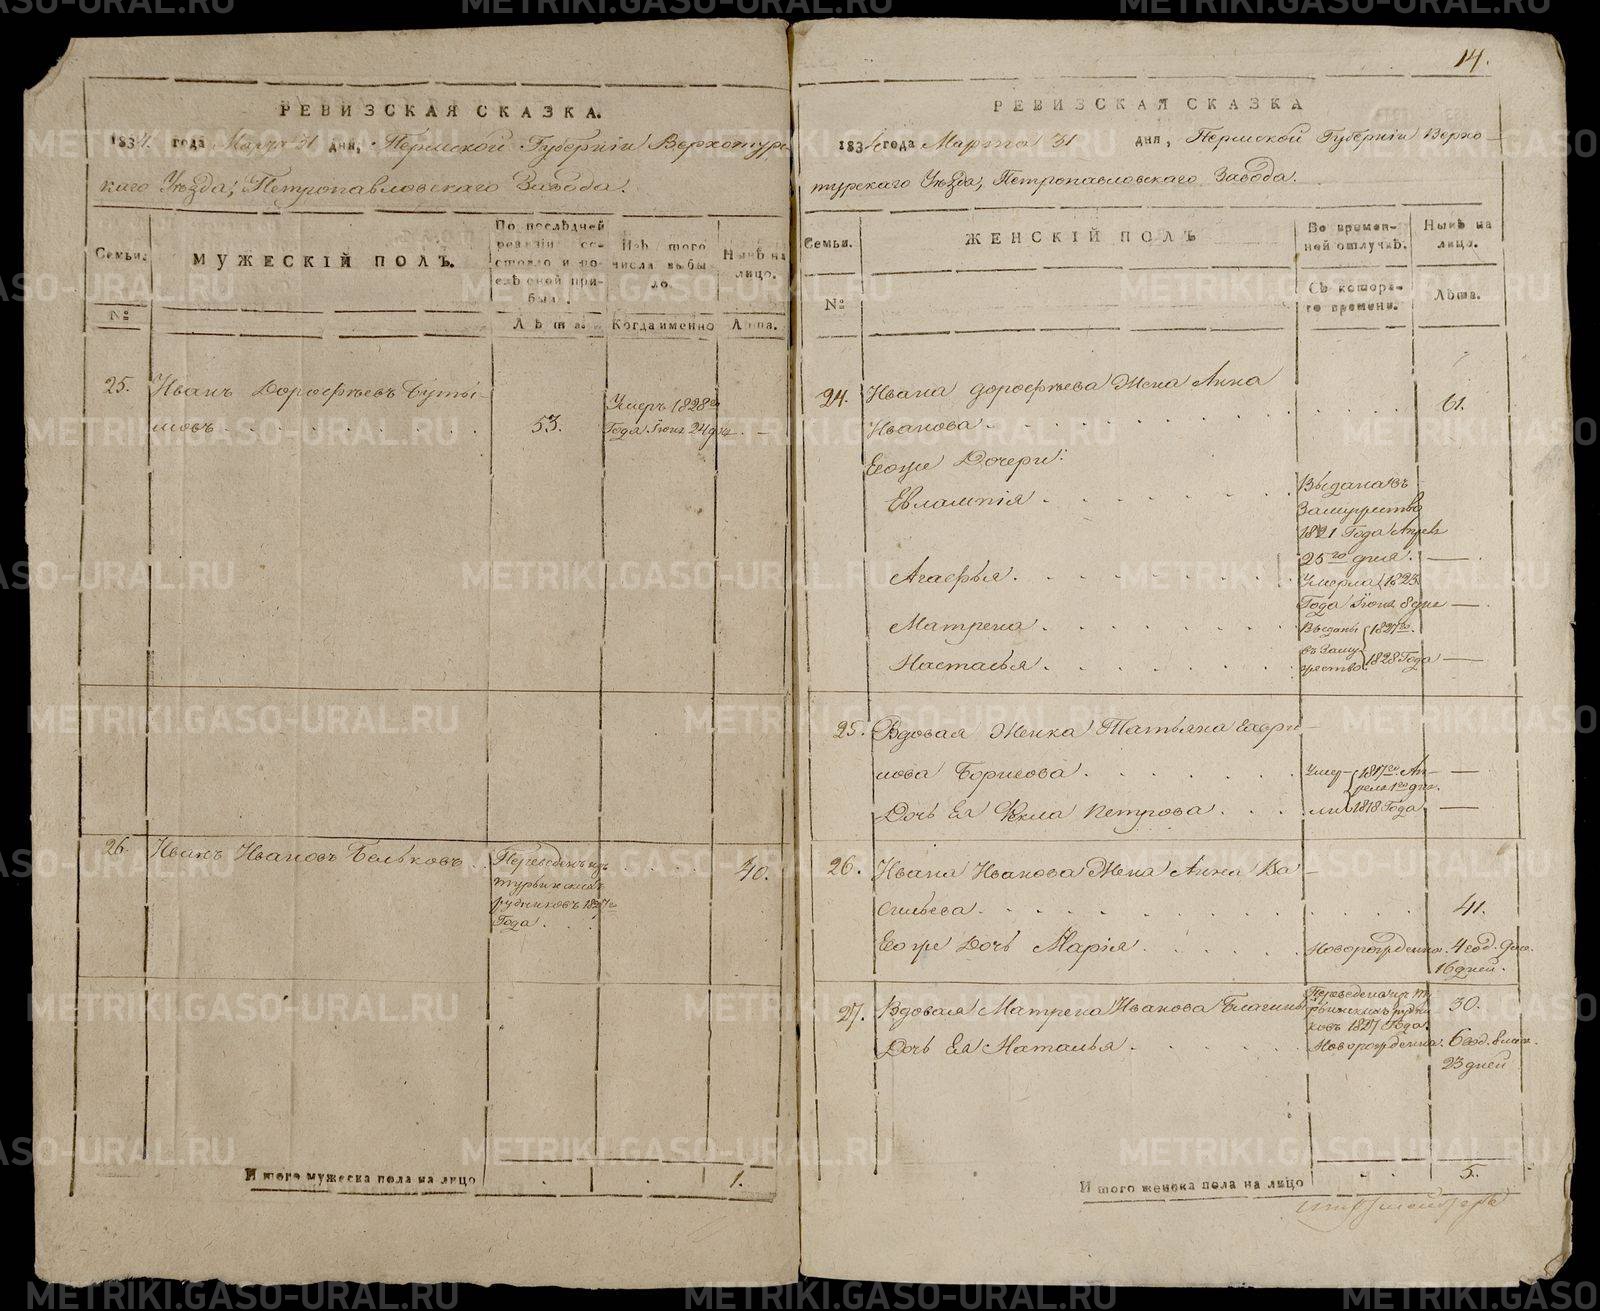 РЕВИЗСКАЯ СКАЗКА.
1834. года Марта 31 дня, Пермской Губерніи Верхотурс
каго Уѣзда, Петропавловскаго Завода.
Семьи.
МУЖЕСКІЙ ПОЛЪ.
По послѣдней
ревизіи со-
стояло и по-
слѣ оной при-
было.
Изъ того
числа выбы
ло.
Нынѣ на
лицо.
№
Лѣта.
Когда именно
Лѣта.
25. Иванъ Дорофѣевъ
53.
Умеръ 1828го
Года Іюня 24 дня
26. Иванъ Ивановъ Бальковъ
Переведенъ изъ
турьинскихъ
рудниковъ 1827го
Года
40.
Итого мужеска пола на лицо 1.
14.
РЕВИЗСКАЯ СКАЗКА
1834 года Марта 31 дня, Пермской Губерніи Верхо-
турскаго Уѣзда, Петропавловскаго Завода.
Семьи.
ЖЕНСКІЙ ПОЛЪ
Во времен-
ной отлучкѣ.
Нынѣ на
лицо.
№
Съ котора-
го времени.
Лѣта.
24. Ивана дорофѣева Жена Анна
Иванова
61.
Его же Дочери:
Евлампія
Выдана въ
Замужество
1821 Года Апреля
25го дня.
Агафья.
Умерла 1825
Года Іюня 8 дня
Матрена
Выданы 1827го.
Наталья
въ Заму
жество. 1828 Года
25. Вдовая Женка Татьяна Гаври-
лова Борисова
Умер- 1817го. Ап-
реля 1го дня.
Дочь Ея Фекла Петрова
ли 1818 Года
26. Ивана Иванова Жена Анна Ва-
сильева
41.
Его же Дочь Марія
Новорожденна. 4 год.
16 дней.
27. Вдовая Матрена Иванова
Переведена изъ Ту
рьинскихъ рудни
ковъ 1827 Года.
30.
Дочь Ея Наталья
Новорожденна. 6 год. 8 мес.
23 дней
Итого женска пола на лицо 5.
METRIKI.GASO-URAL.RU